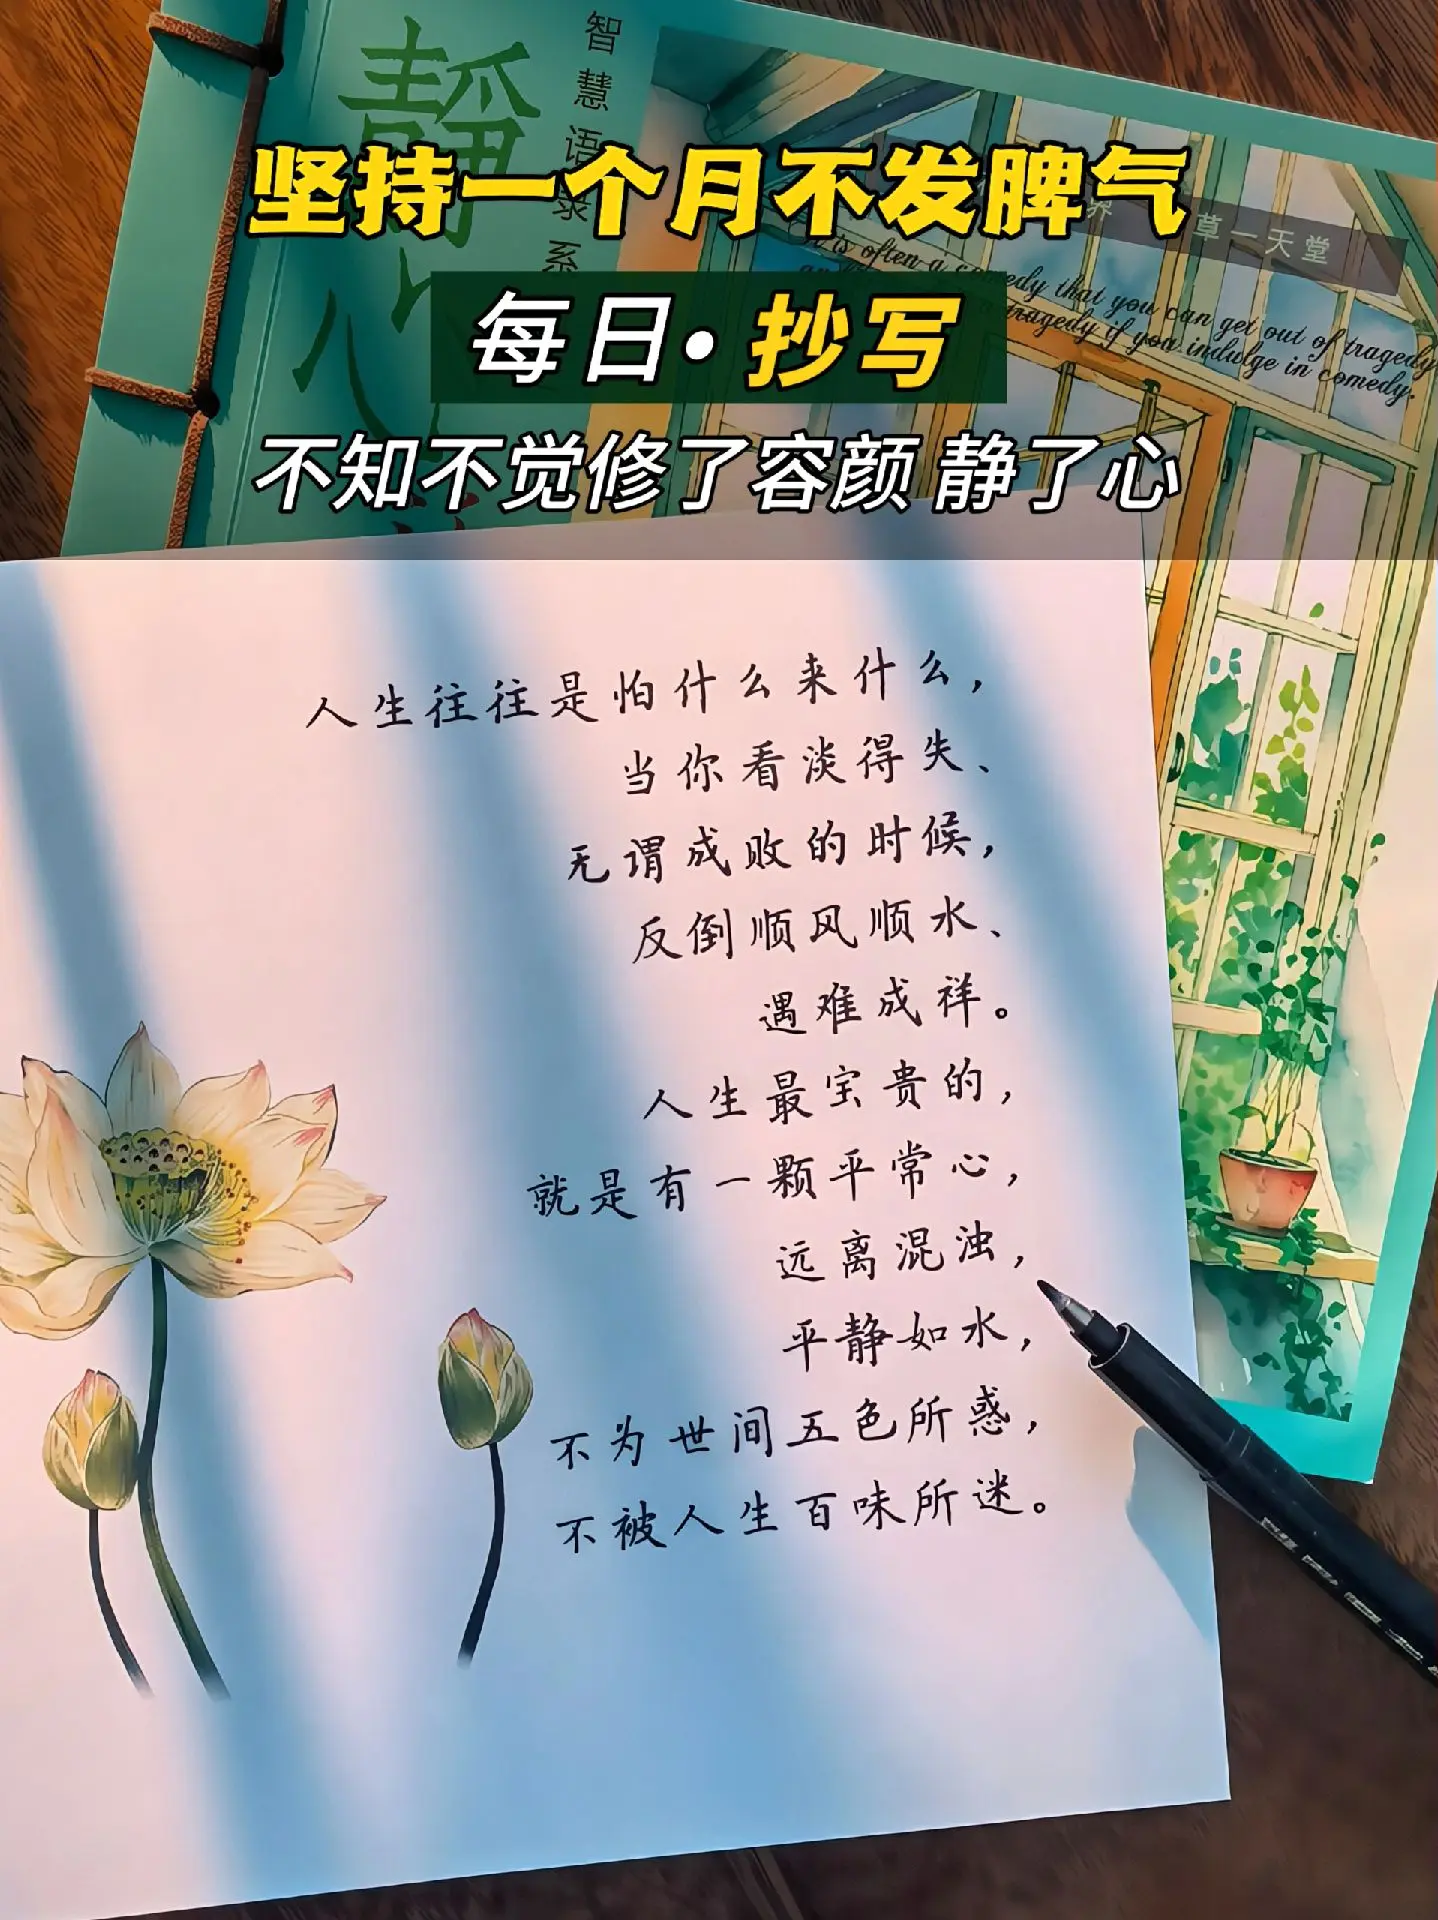 静心
智慧语录系
坚持一个月不发脾气
草一天堂
It is often a comedy that you can get out of tragedy
tragedy if you indulge in comedy.
每日·抄写
不知不觉修了容颜 静了心
人生往往是怕什么来什么，
当你看淡得失、
无谓成败的时候，
反倒顺风顺水、
遇难成祥。
人生最宝贵的，
就是有一颗平常心，
远离混浊，
平静如水，
不为世间五色所惑，
不被人生百味所迷。